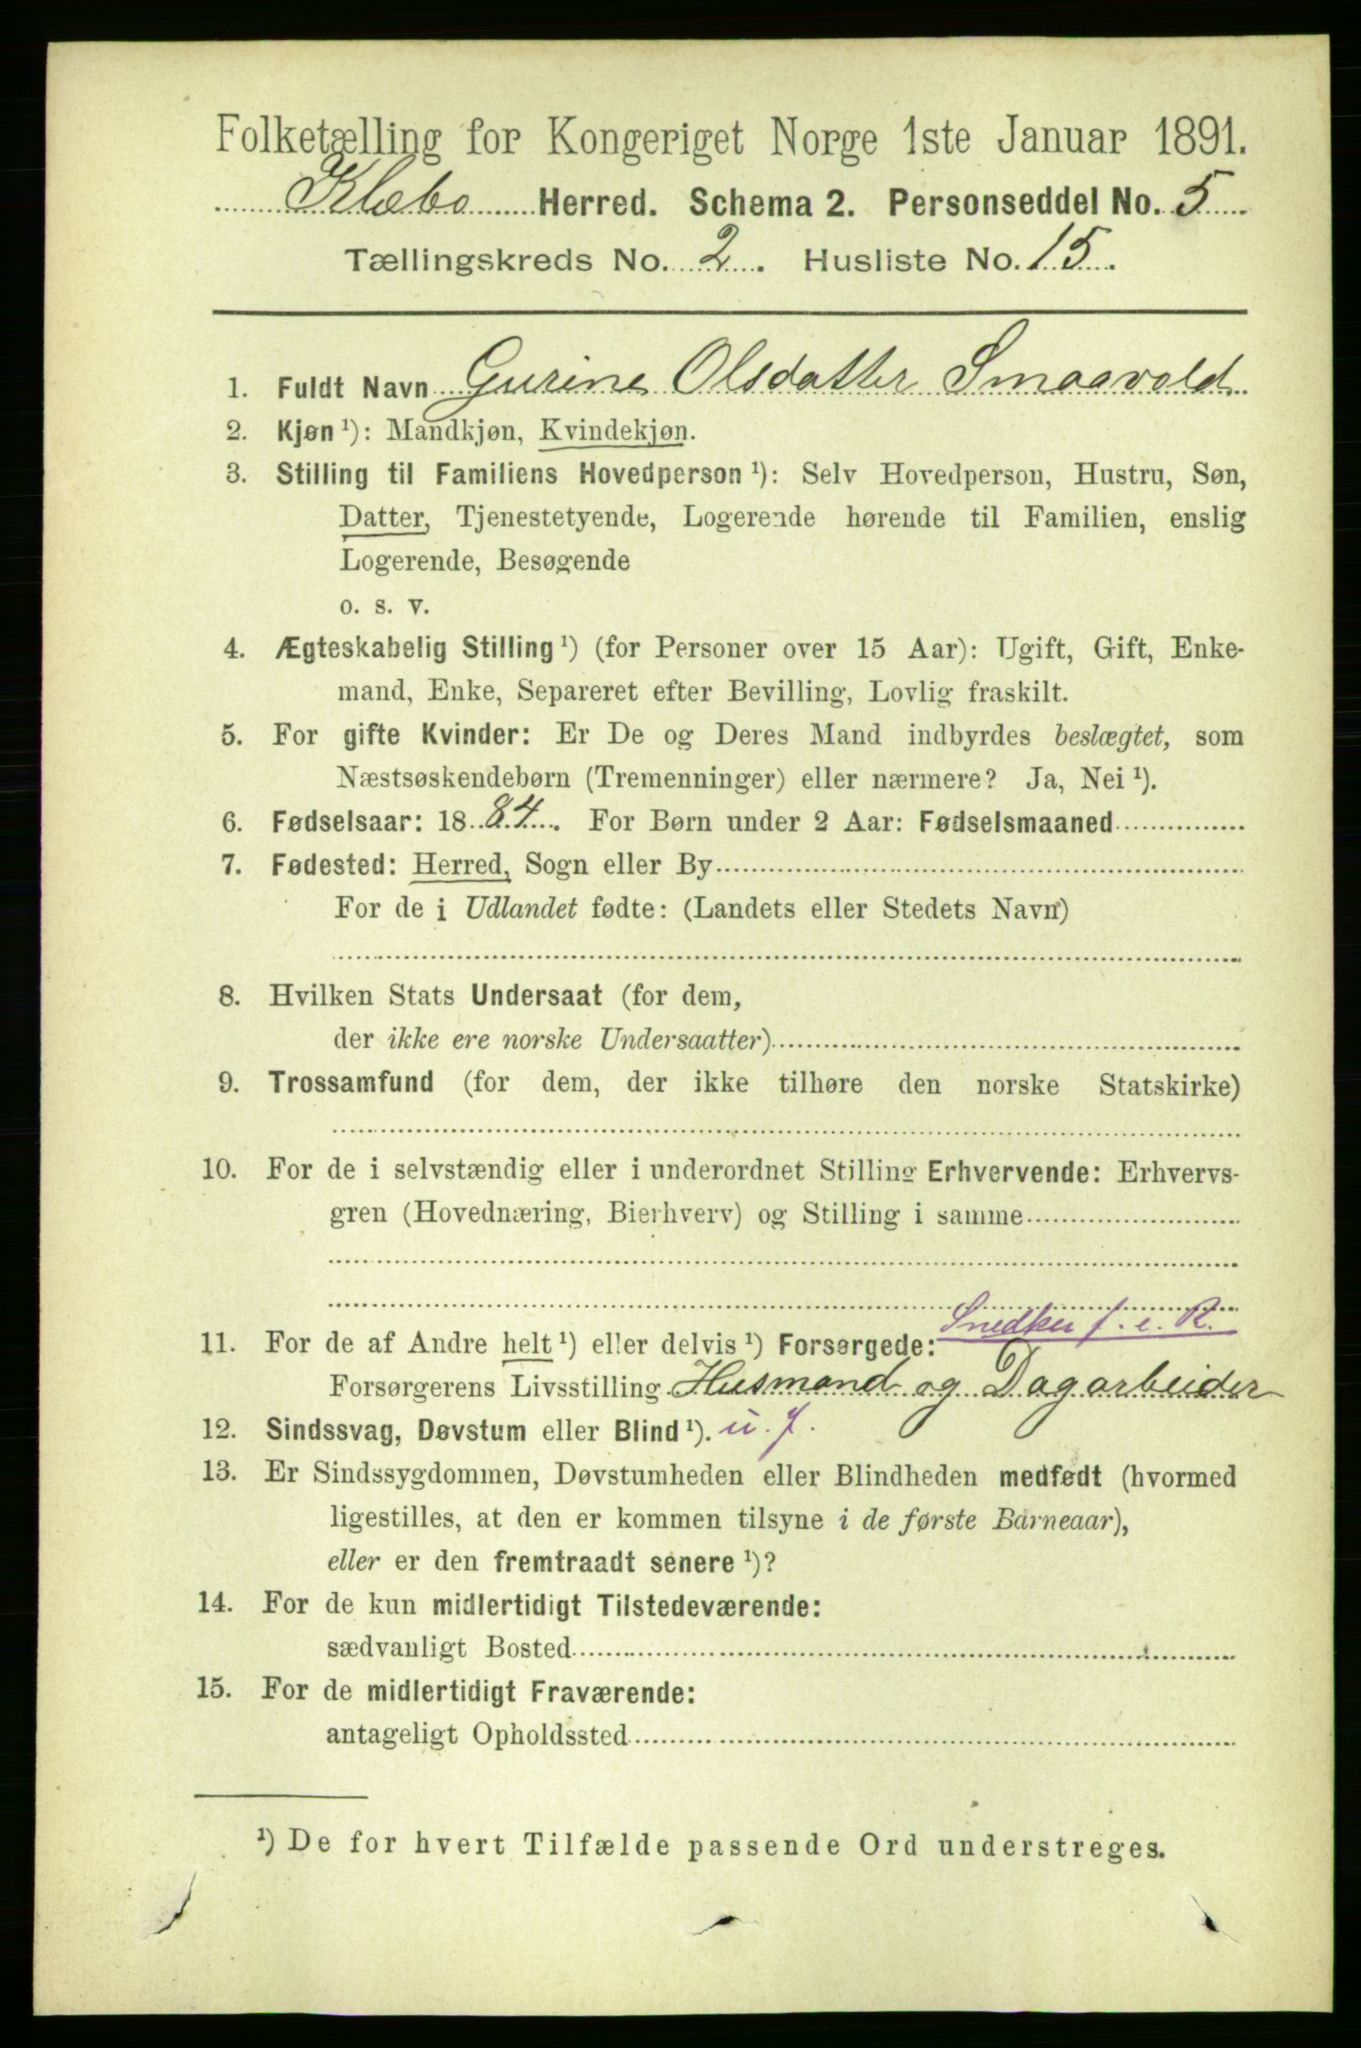 Folketælling for Kongeriget Norge 1ste Januar 1891.
Klæbo Herred. Schema 2. Personseddel No. 5
Tællingskreds No. 2. Husliste No. 15.
1. Fuldt Navn Gurine Olsdatter Smaavold
2. Kjøn ¹): Mandkjøn, Kvindekjøn.
3. Stilling til Familiens Hovedperson ¹): Selv Hovedperson, Hustru, Søn,
Datter, Tjenestetyende, Logerende hørende til Familien, enslig
Logerende, Besøgende
o. s. v.
4. Ægteskabelig Stilling ¹) (for Personer over 15 Aar): Ugift, Gift, Enke-
mand, Enke, Separeret efter Bevilling, Lovlig fraskilt.
5. For gifte Kvinder: Er De og Deres Mand indbyrdes beslægtet, som
Næstsøskendebørn (Tremenninger) eller nærmere? Ja, Nei ¹).
6. Fødselsaar: 1884. For Børn under 2 Aar: Fødselsmaaned
7. Fødested: Herred, Sogn eller By
For de i Udlandet fødte: (Landets eller Stedets Navn)
8. Hvilken Stats Undersaat (for dem,
der ikke ere norske Undersaatter)
9. Trossamfund (for dem, der ikke tilhøre den norske Statskirke)
10. For de i selvstændig eller i underordnet Stilling Erhvervende: Erhvervs-
gren (Hovednæring, Bierhverv) og Stilling i samme
Snedker f. e. R.
11. For de af Andre helt ¹) eller delvis ¹) Forsørgede:
Forsørgerens Livsstilling Husmand og Dagarbeider
12. Sindssvag, Døvstum eller Blind ¹). u. f.
13. Er Sindssygdommen, Døvstumheden eller Blindheden medfødt (hvormed
ligestilles, at den er kommen tilsyne i de første Barneaar),
eller er den fremtraadt senere ¹)?
14. For de kun midlertidigt Tilstedeværende:
sædvanligt Bosted
15. For de midlertidigt Fraværende:
antageligt Opholdssted
¹) De for hvert Tilfælde passende Ord understreges.